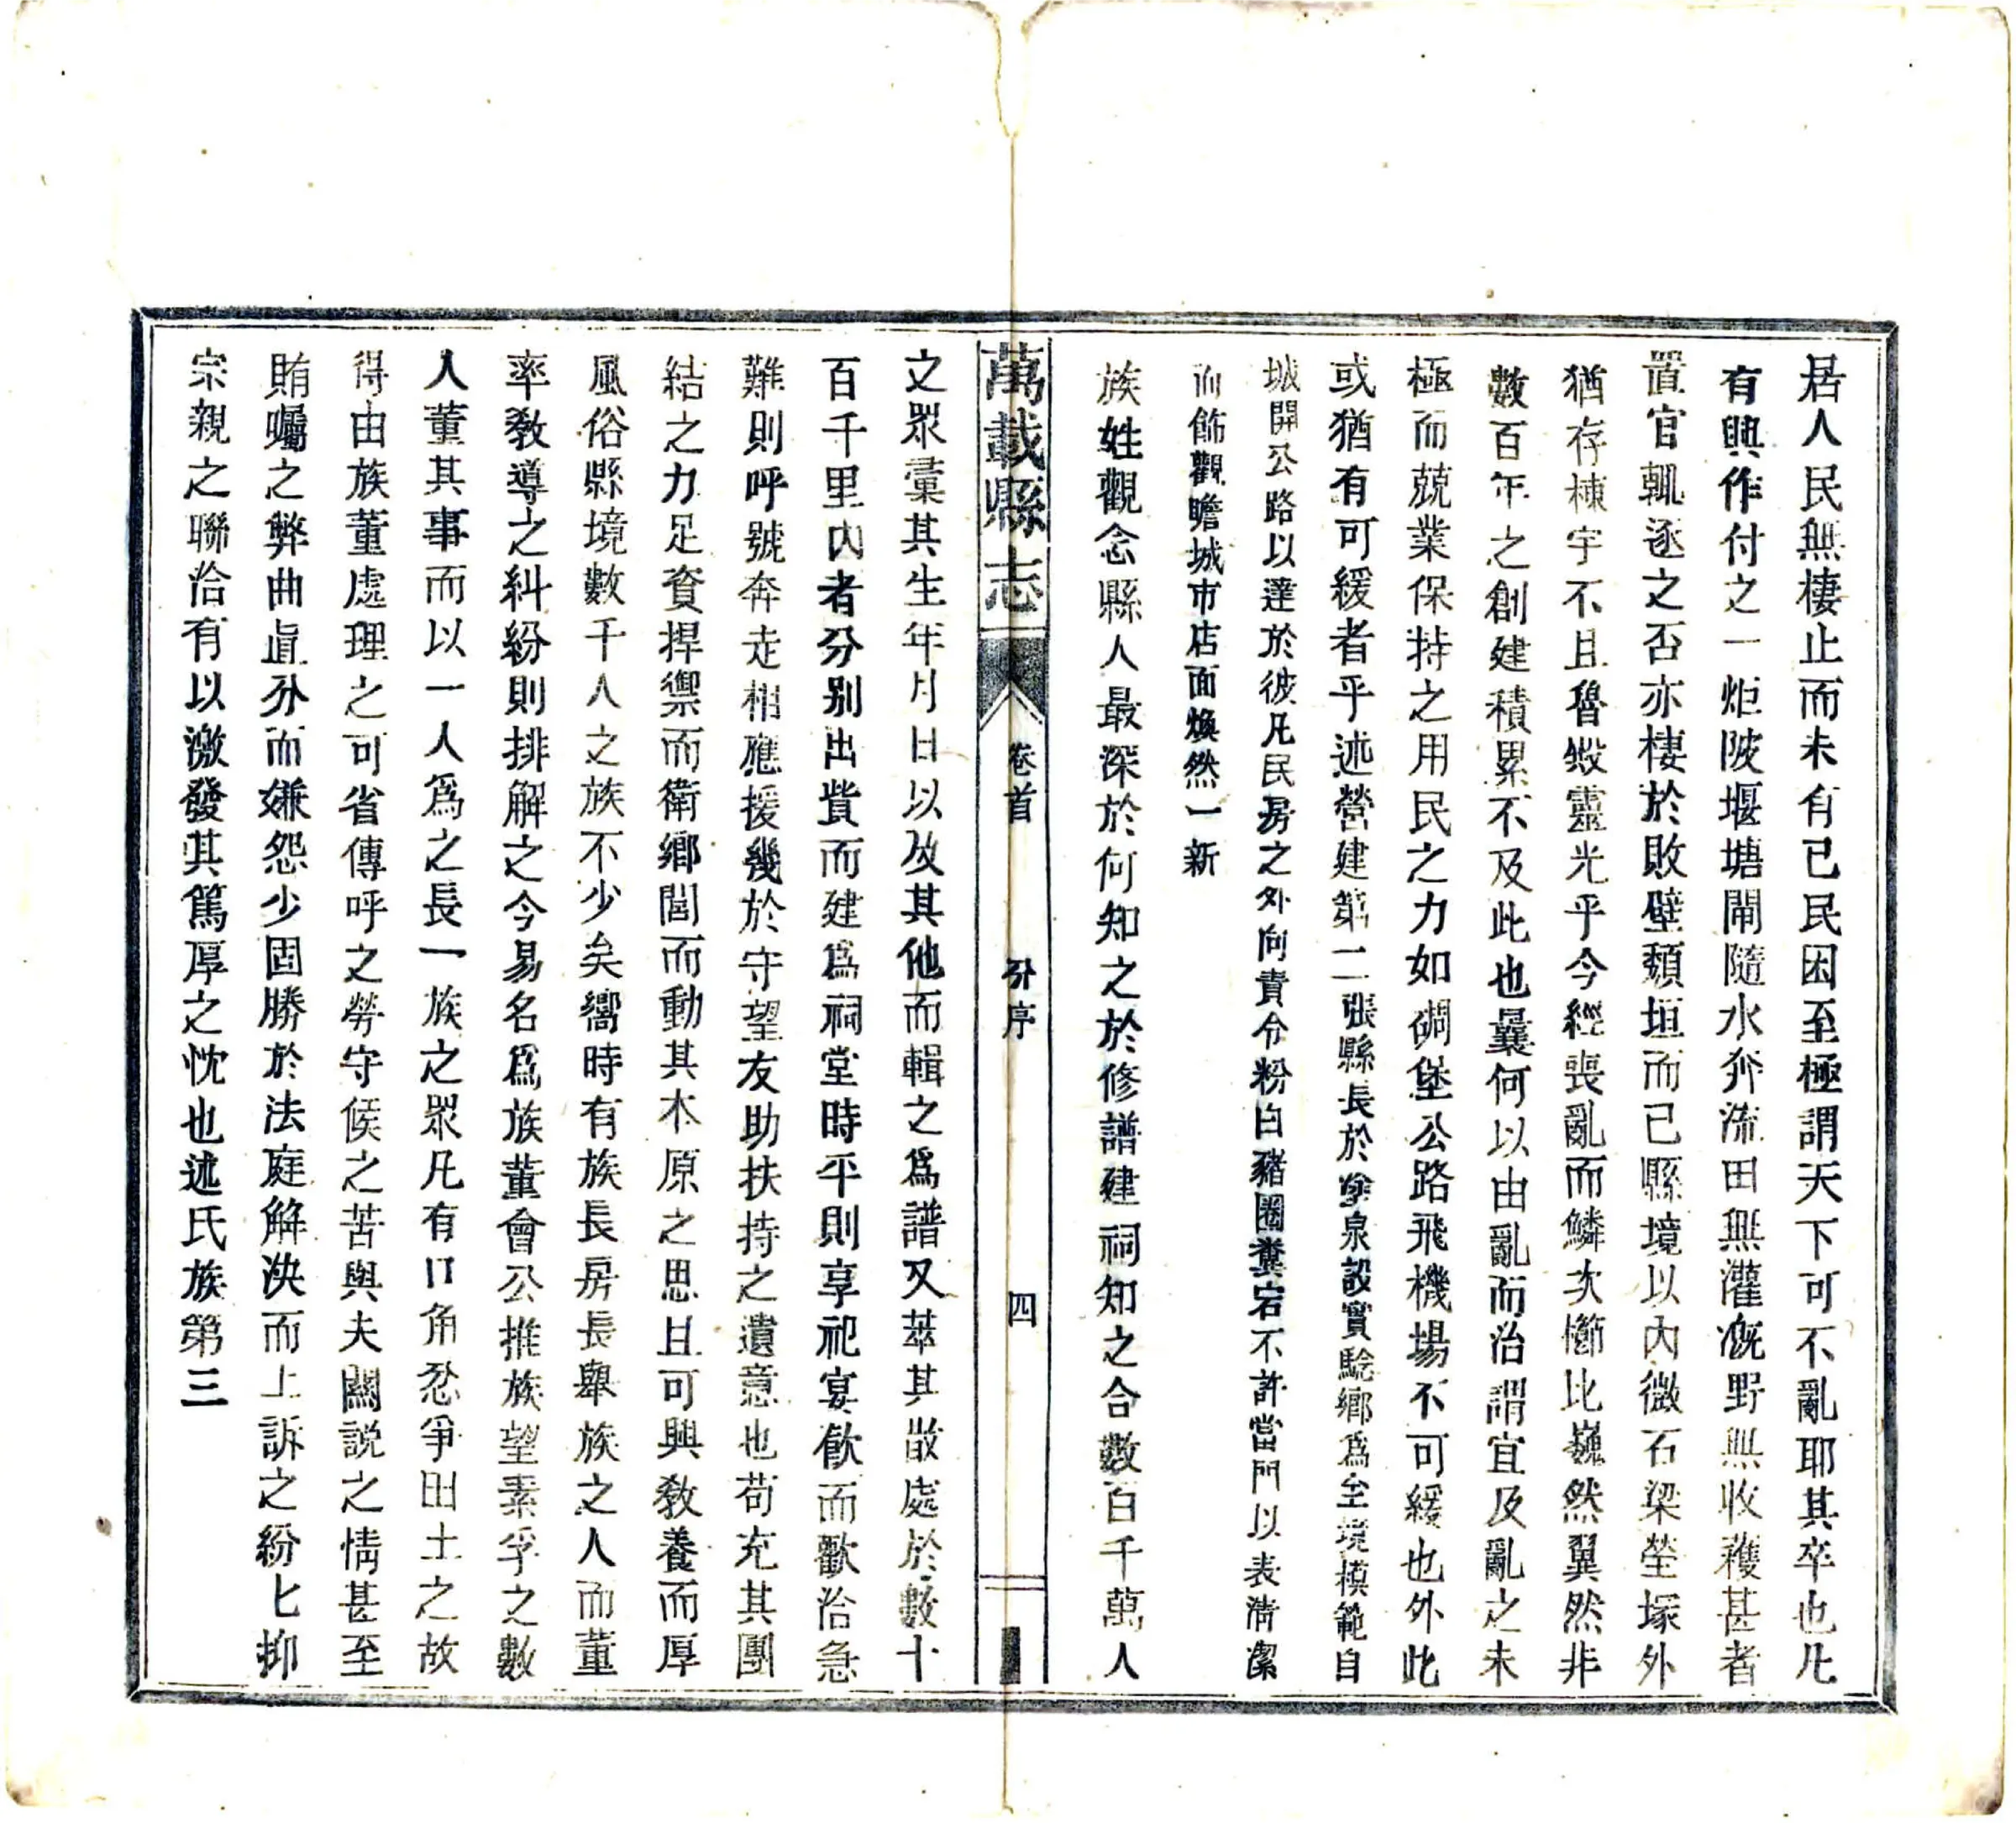 居人民無棲止而未有已民困至極謂天下可不亂耶其卒也凡
有興作付之一炬陂堰塘閘隨水奔流田無灌溉野無收穫甚者
置官輒逐之否亦棲於敗壁頹垣而已縣境以內微石梁塋塚外
猶存棟宇不且魯毀靈光乎今經喪亂而鱗次櫛比巍然翼然非
數百年之創建積累不及此也曩何以由亂而治謂宜及亂之未
極而兢業保持之用民之力如碉堡公路飛機場不可緩也外此
或猶有可緩者乎述營建第二張縣長於塗泉設實騐鄉爲全境模範自
城開公路以達於彼凡民房之外向責令粉白豬圈糞宕不許當門以表淸潔
而飾觀瞻城市店面煥然一新
族姓觀念縣人最深於何知之於修譜建祠知之合數百千萬人
萬載縣志
卷首
分序
四
之眾彙其生年月日以及其他而輯之爲譜又萃其散處於數十
百千里內者分别出貲而建爲祠堂時平則享祀宴飲而歡洽急
難則呼號奔走相應援幾於守望友助扶持之遺意也苟充其團
結之力足資捍禦而衛鄉閭而動其木原之思且可興敎養而厚
風俗縣境數千人之族不少矣嚮時有族長房長舉族之人而董
率敎導之糾紛則排解之今易名爲族董會公推族望素孚之數
人董其事而以一人爲之長一族之眾凡有口角忿爭田土之故
得由族董處理之可省傳呼之勞守候之苦與夫關説之情甚至
賄囑之弊曲直分而嫌怨少固勝於法庭解決而上訴之紛匕抑
宗親之聯洽有以激發其篤厚之忱也述氏族第三